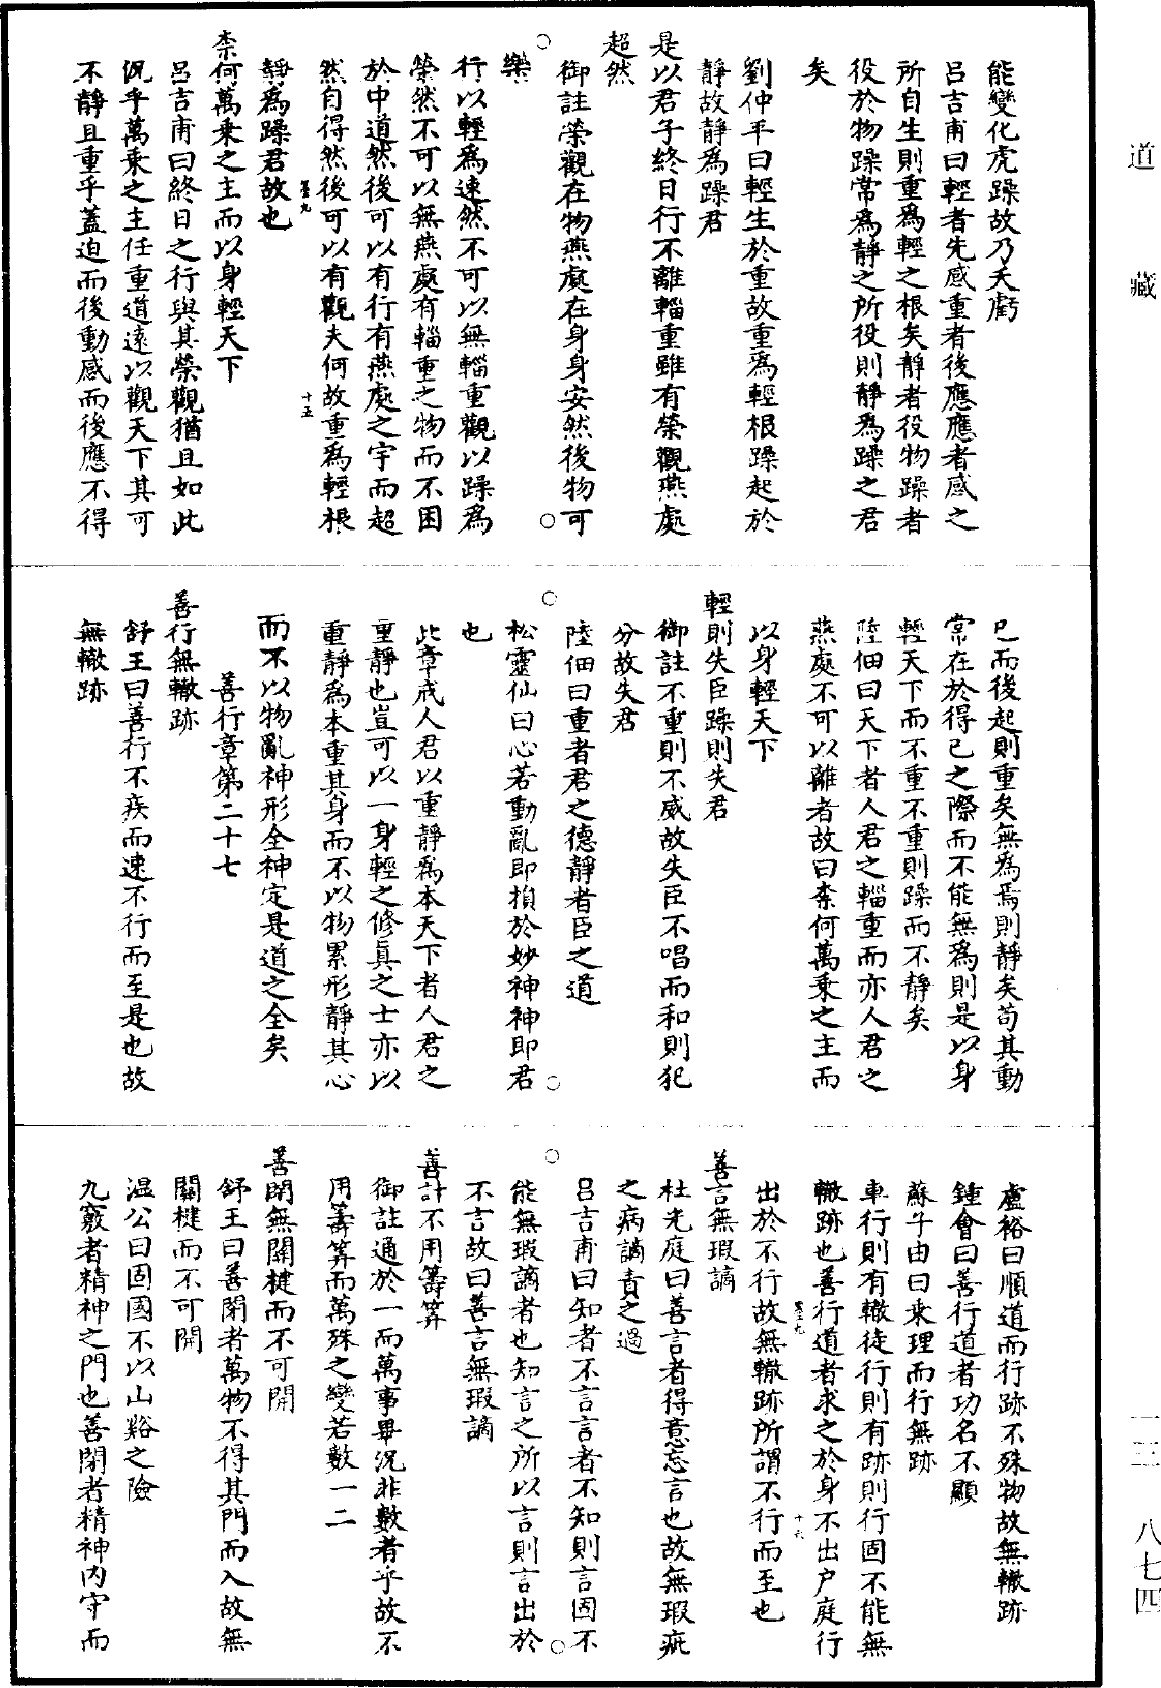 道藏
能變化虎躁故乃夭虧
呂吉甫曰輕者先感重者後應應者感之
所自生則重爲輕之根矣靜者役物躁者
役於物躁常爲靜之所役則靜爲躁之君
矣
劉仲平曰輕生於重故重爲輕根躁起於
靜故靜爲躁君
是以君子終日行不離輜重雖有榮觀燕處
超然
御註榮觀在物燕處在身身安然後物可
樂
行以輕爲速然不可以無輜重觀以躁爲
榮然不可以無燕處有輜重之物而不困
於中道然後可以有行有燕處之宇而超
然自得然後可以有觀夫何故重爲輕根
靜爲躁君故也
柰何萬乘之主而以身輕天下
呂吉甫曰終日之行與其榮觀猶且如此
況乎萬乘之主任重道遠以觀天下其可
不靜且重乎蓋迫而後動感而後應不得
已而後起則重矣無爲焉則靜矣苟其動
常在於得已之際而不能無爲則是以身
輕天下而不重不重則躁而不靜矣
陸佃曰天下者人君之輜重而亦人君之
燕處不可以離者故曰柰何萬乘之主而
以身輕天下
輕則失臣躁則失君
御註不重則不威故失臣不唱而和則犯
分故失君
陸佃曰重者君之德靜者臣之道
松靈仙曰心若動亂即損於妙神神即君
也
此章戒人君以重靜爲本天下者人君之
重靜也豈可以一身輕之修真之士亦以
重靜爲本重其身而不以物累形靜其心
而不以物亂神形全神定是道之全矣
善行章第二十七
善行無轍跡
舒王曰善行不疾而速不行而至是也故
無轍跡
盧裕曰順道而行跡不殊物故無轍跡
鍾會曰善行道者功名不顯
蘇子由曰乘理而行無跡
車行則有轍徒行則有跡則行固不能無
轍跡也善行道者求之於身不出戶庭行
出於不行故無轍跡所謂不行而至也
善言無瑕謫
杜光庭曰善言者得意忘言也故無瑕疵
之病謫責之過
呂吉甫曰知者不言言者不知則言固不
能無瑕謫者也知言之所以言則言出於
不言故曰善言無瑕謫
善計不用籌筭
御註通於一而萬事畢況非數者乎故不
用籌筭而萬殊之變若數一二
善閉無關楗而不可開
舒王曰善閉者萬物不得其門而入故無
關楗而不可開
溫公曰固國不以山谿之險
九竅者精神之門也善閉者精神內守而
十五
十六
一三 八七四